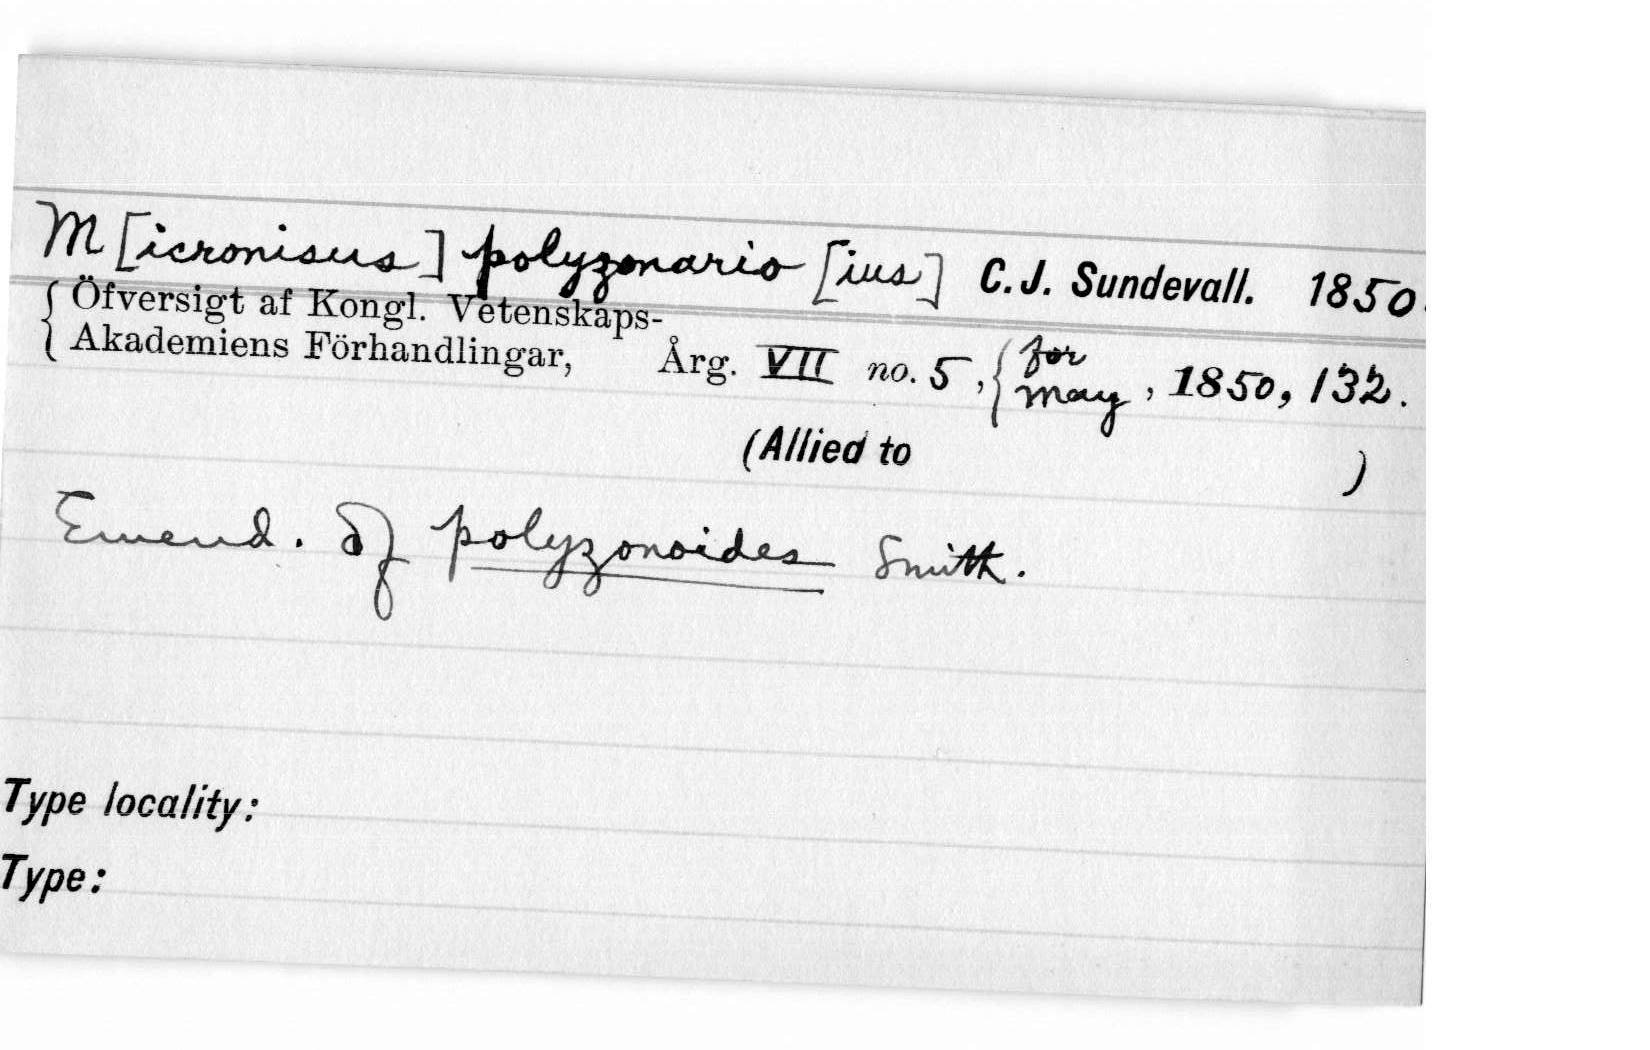 M[icronisus] polyzonario [ius] C. J. Sundevall. 1850.
Öfversigt af Kongl. Vetenskaps-
Akademiens Förhandlingar, Årg. VII no. 5, { for May, 1850, 132.
(Allied to )
Emend. Of polyzonoides Smith.
Type locality:
Type: